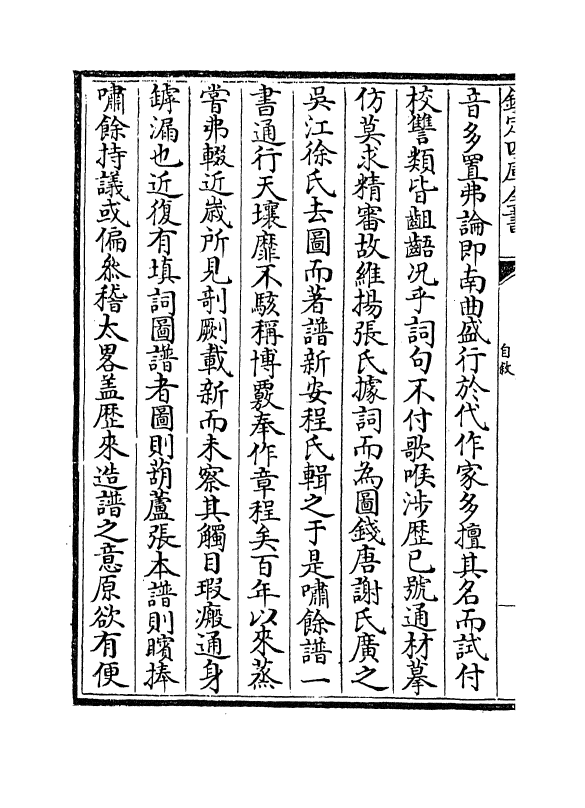 欽定四庫全書
自敘
音多置弗論即南曲盛行於代作家多擅其名而試付
校讐類皆齟齬况乎詞句不付歌喉渉歴已號通材摹
仿莫求精審故維揚張氏據詞而為圖錢唐謝氏廣之
吳江徐氏去圖而著譜新安程氏輯之于是嘯餘譜一
書通行天壤靡不駭稱博覈奉作章程矣百年以來蒸
嘗弗輟近歳所見剞劂載新而未察其觸目瑕瘢通身
罅漏也近復有填詞圖譜者圖則葫蘆張本譜則矉捧
嘯餘持議或偏叅稽太畧盖歴來造譜之意原欲有便